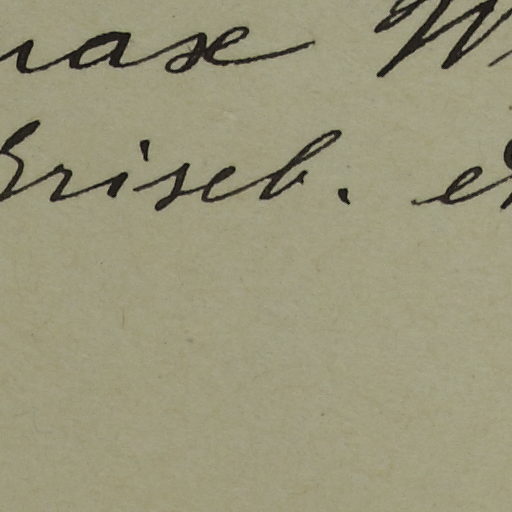 nase W
Griseb. et